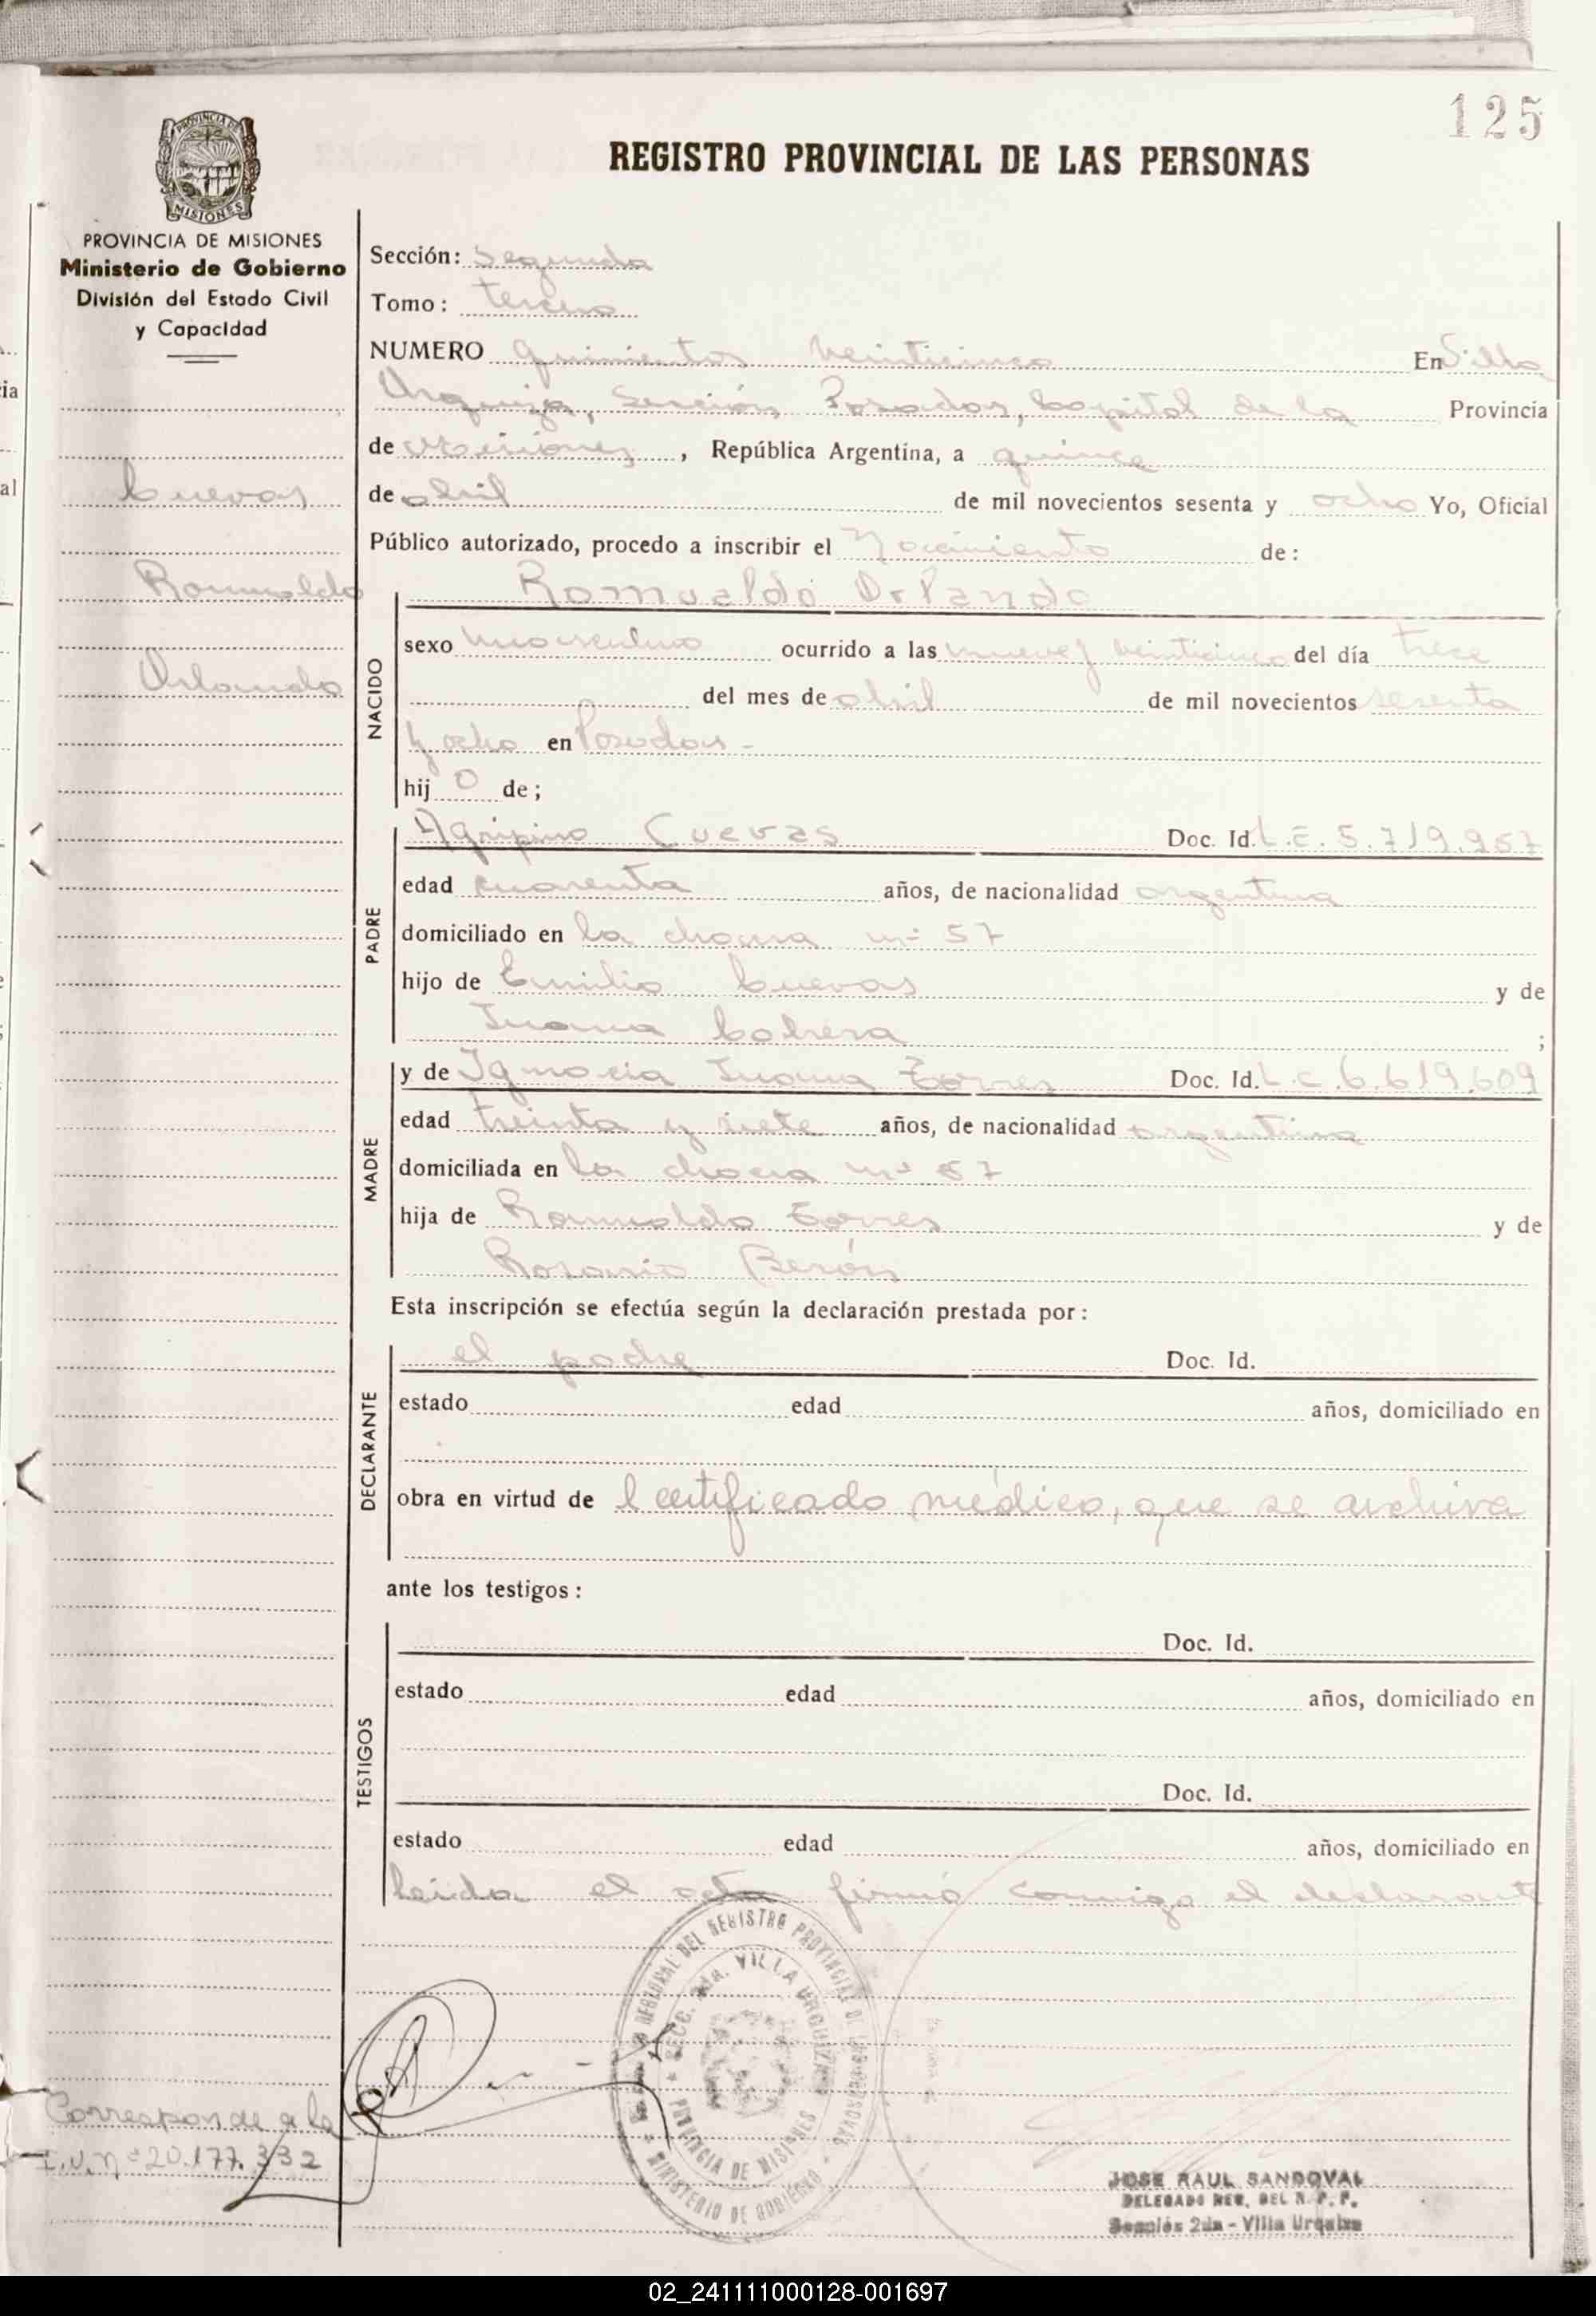 125
REGISTRO PROVINCIAL DE LAS PERSONAS
PROVINCIA DE
MISIONES
PROVINCIA DE MISIONES
Ministerio de Gobierno
División del Estado Civil
y Capacidad
Cuevas
Romualdo
Orlando
Sección: Segunda
Tomo: tercero
NUMERO quinientos veinticinco En Villa
Urquiza, Sección Posadas, Capital de la Provincia
de Misiones, República Argentina, a quince
de abril de mil novecientos sesenta y ocho Yo, Oficial
Público autorizado, procedo a inscribir el Nacimiento de:
NACIDO
Romualdo Orlando
sexo masculino ocurrido a las nueve y veinticinco del día trece
del mes de abril de mil novecientos sesenta
y ocho en Posadas -
hijo de;
PADRE
Agripino Cuevas Doc. Id. L.E. 5.719.957
edad cuarenta años, de nacionalidad argentina
domiciliado en la chacra nº 57
hijo de Emilio Cuevas y de
Juana Cabrera ;
MADRE
y de Ignacia Juana Torres Doc. Id. L.C. 6.619.609
edad treinta y siete años, de nacionalidad argentina
domiciliada en la chacra nº 57
hija de Romualdo Torres y de
Rosario Berón
Esta inscripción se efectúa según la declaración prestada por:
DECLARANTE
el padre Doc. Id.
estado edad años, domiciliado en
obra en virtud de l certificado médico, que se archiva
ante los testigos:
TESTIGOS
Doc. Id.
estado edad años, domiciliado en
Doc. Id.
estado edad años, domiciliado en
leída el acta firmó conmigo el declarante
REGIONAL DEL REGISTRO PROVINCIAL DE LAS PERSONAS
SECC. 2da. VILLA URQUIZA
PROVINCIA DE MISIONES
MINISTERIO DE GOBIERNO
Corresponde a la
I.N. nº 20.177.332
JOSE RAUL SANDOVAL
DELEGADO REG. DEL R. P. P.
Sección 2da - Villa Urquiza
02_241111000128-001697